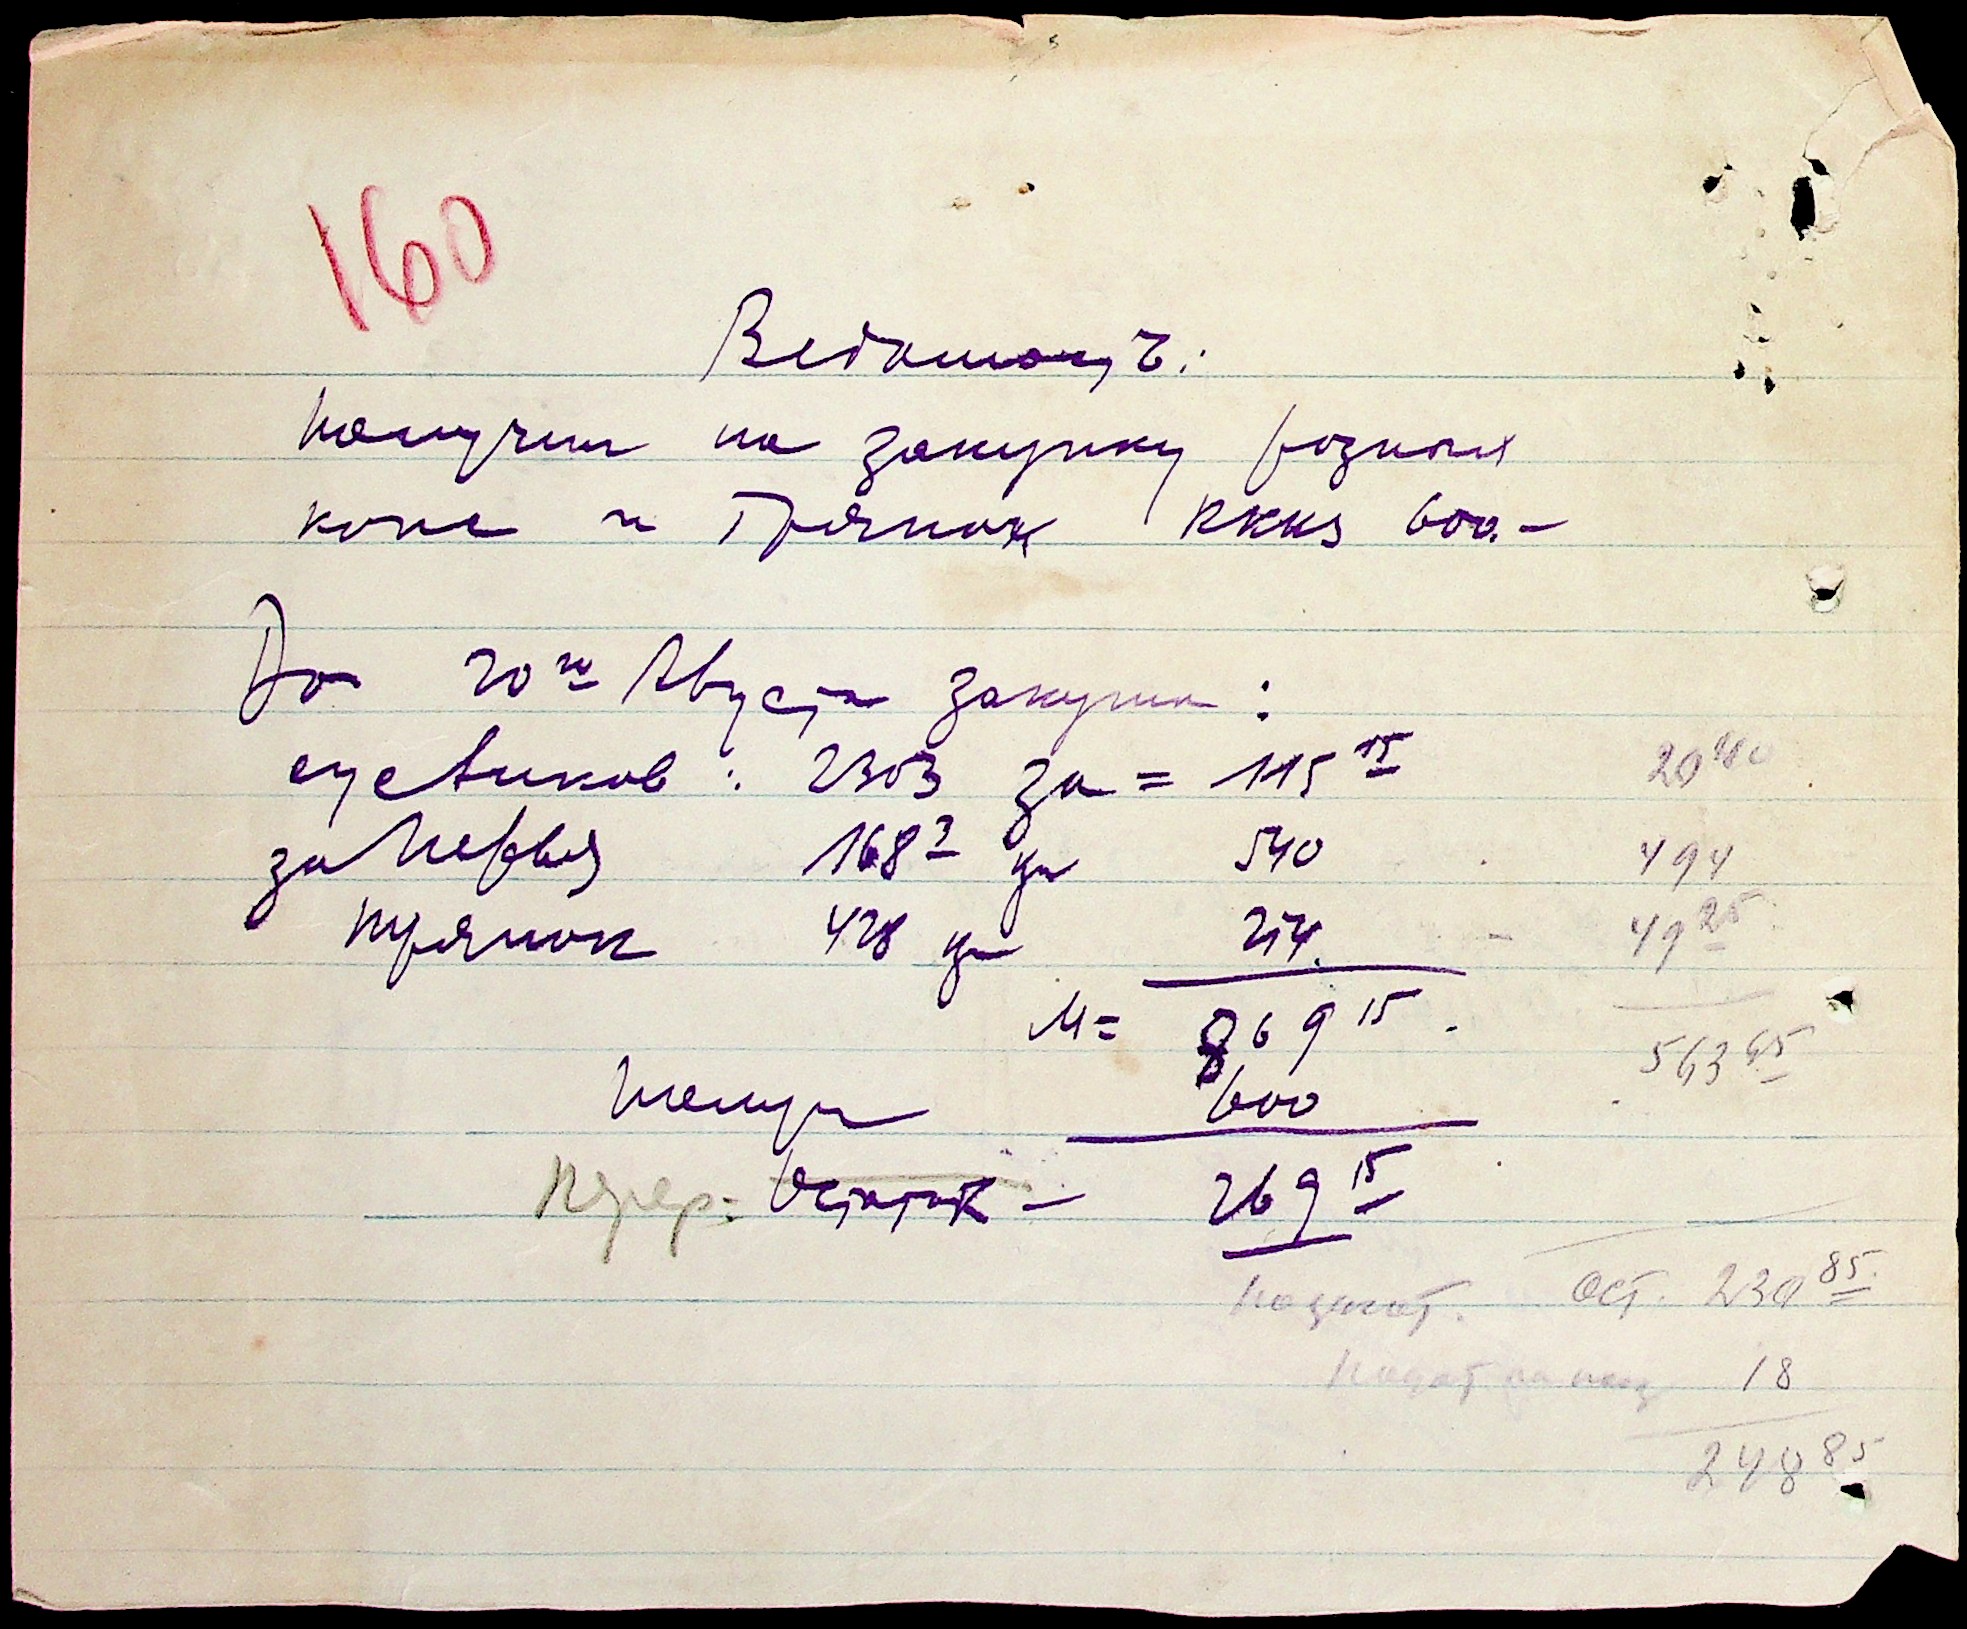 160
Ведомость.
Получил на закупку разных
кож и Прянок ККиЗ 600.-
До 20го Августа закупил:
сусликов: 2303 за = 115 15
за 168 за 540 494
Прянок 428 за 214. - 49 25
И = 869 15. 563 65
Получил 600
Перер: Остаток - 269 15
ост. 230 85
18
248 85